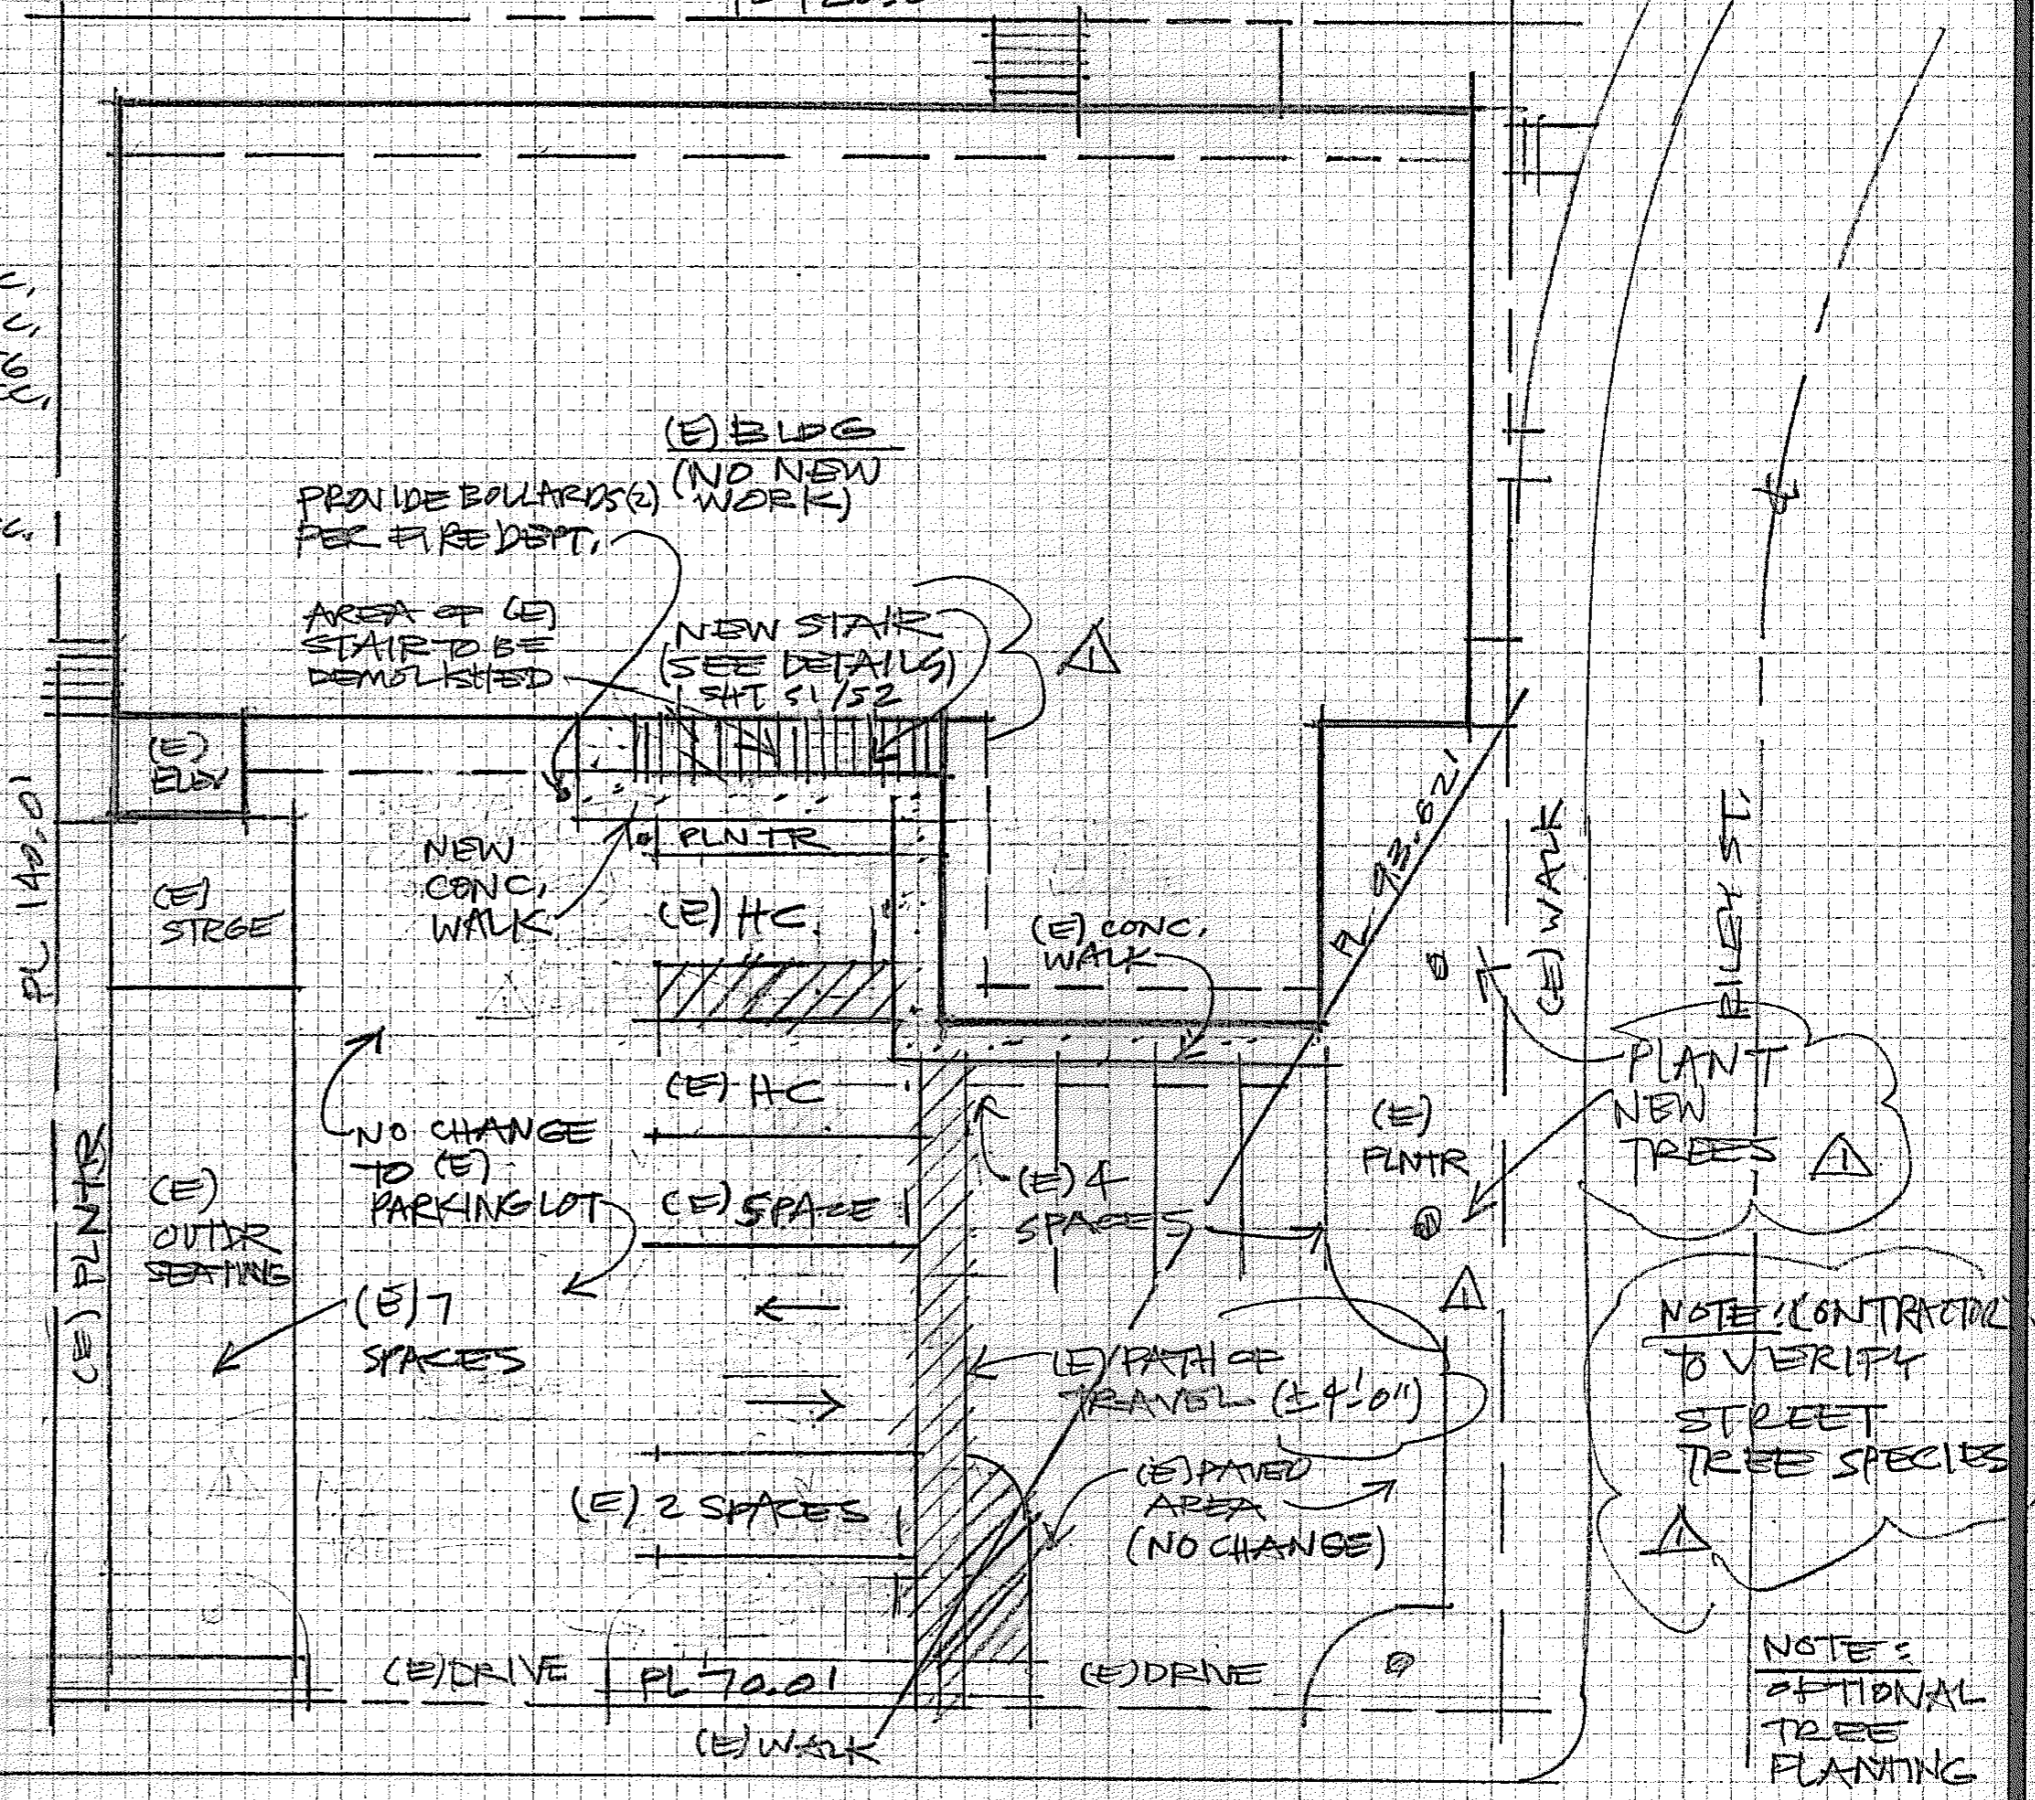 (E) BLDG
(NO NEW
WORK)
PROVIDE BOLLARDS (2)
PER FIRE DEPT.
AREA OF (E)
STAIR TO BE
DEMOLISHED
NEW STAIR
(SEE DETAILS)
SHT S1/S2
1
(E)
ELEV
PL 140.01
NEW
CONC.
WALK
PLNTR
(E) HC.
(E)
STRGE
(E) CONC.
WALK
PL 93.621
(E) WALK
RILEY ST.
PLANT
NEW
TREES
1
(E) HC
NO CHANGE
TO (E)
PARKING LOT
(E) SPACE
(E) 4
SPACES
(E)
PLNTR
1
(E) PLNTR
(E)
OUTDR
SEATING
(E) 7
SPACES
(E) PATH OF
TRAVEL (±4'-0")
NOTE: CONTRACTOR
TO VERIFY
STREET
TREE SPECIES
1
(E) 2 SPACES
(E) PAVED
AREA
(NO CHANGE)
(E) DRIVE
PL 70.01
(E) DRIVE
(E) WALK
NOTE:
OPTIONAL
TREE
PLANTING